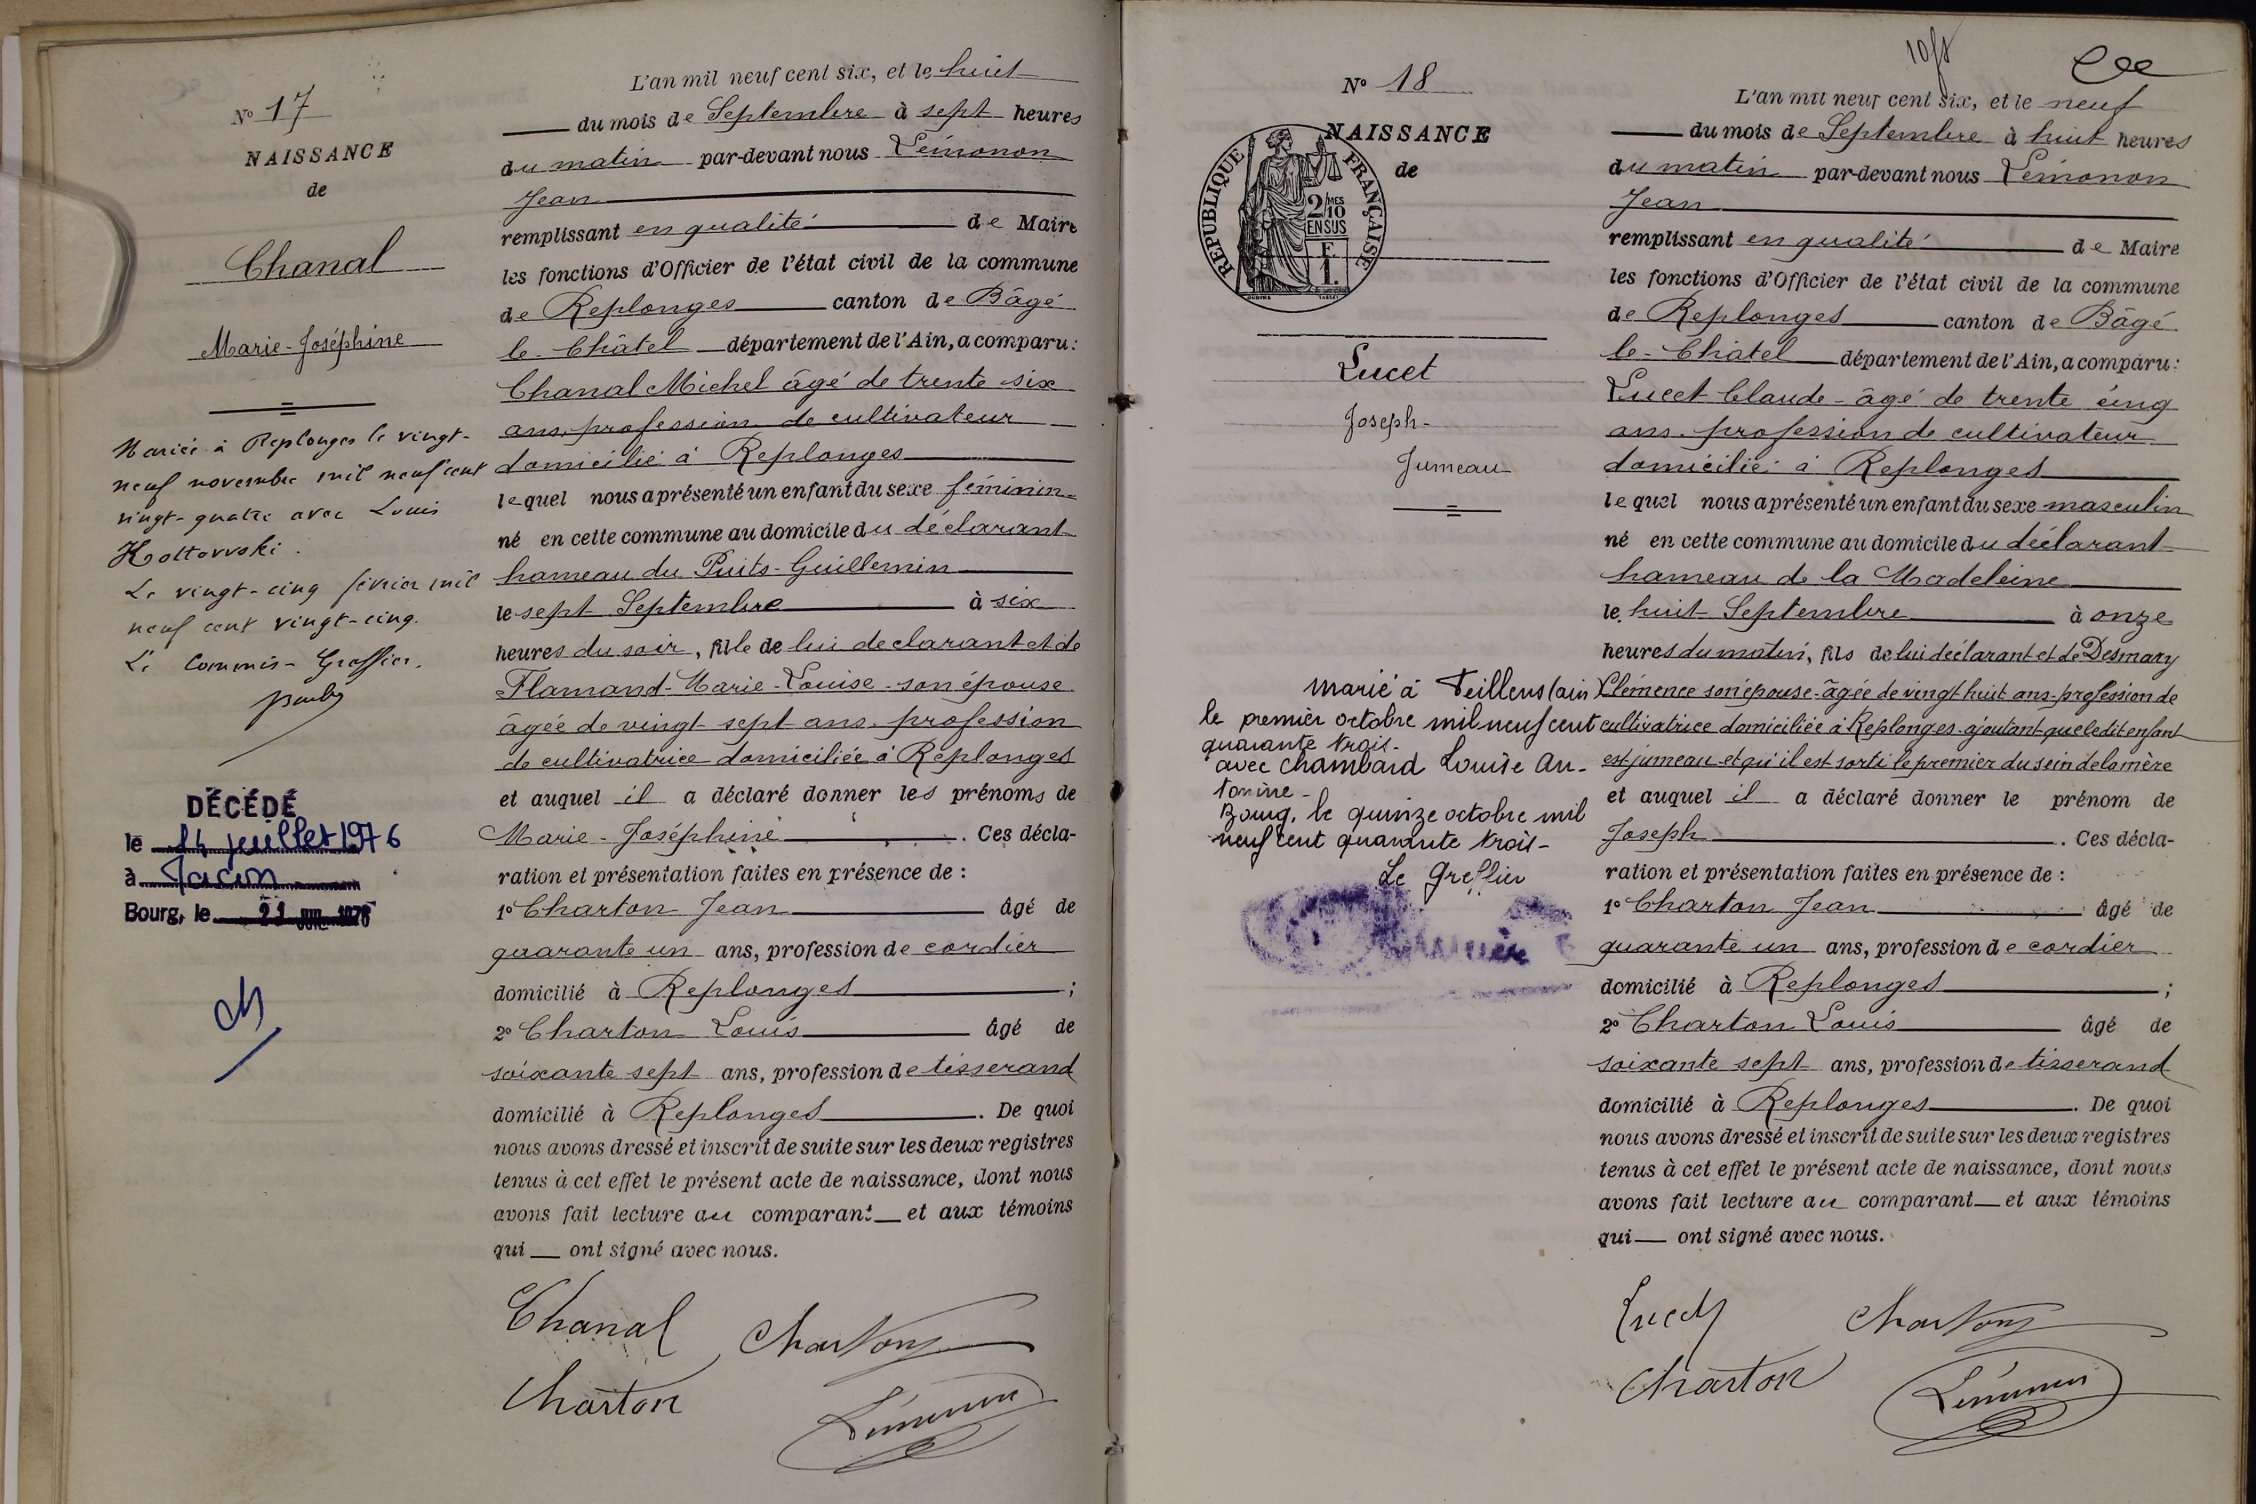 N° 17
NAISSANCE
de
Chanal
Marie-Joséphine
Mariée à Replonges le vingt-
neuf novembre mil neuf cent
vingt-quatre avec Louis
Kottovvski.
Le vingt-cinq février mil
neuf cent vingt-cinq.
Le Commis-Greffier.
DÉCÉDÉ
le 14 juillet 1976
à
Bourg, le 21 JUIL 1976
L'an mil neuf cent six, et le huit
du mois de Septembre à sept heures
du matin par-devant nous Lémonon
Jean
remplissant en qualité de Maire
les fonctions d'Officier de l'état civil de la commune
de Replonges canton de Bâgé
le-Châtel département de l'Ain, a comparu :
Chanal Michel âgé de trente six
ans, profession de cultivateur
domicilié à Replonges
lequel nous a présenté un enfant du sexe féminin
né en cette commune au domicile du déclarant
hameau du Puits-Guillemin
le sept Septembre à six
heures du soir, fille de lui declarant et de
Flamand-Marie-Louise son épouse
âgée de vingt sept ans. profession
de cultivatrice domiciliée à Replonges
et auquel il a déclaré donner les prénoms de
Marie-Joséphine. Ces décla-
ration et présentation faites en présence de :
1° Charton Jean âgé de
quarante un ans, profession de cordier
domicilié à Replonges ;
2° Charton Louis âgé de
soixante sept ans, profession de tisserand
domicilié à Replonges. De quoi
nous avons dressé et inscrit de suite sur les deux registres
tenus à cet effet le présent acte de naissance, dont nous
avons fait lecture au comparant et aux témoins
qui ont signé avec nous.
Chanal Charton
Charton Lémonon
N° 18
NAISSANCE
de
RÉPUBLIQUE FRANÇAISE
2/10 MES
EN SUS
F
1.
Lucet
Joseph-
Jumeau
Marié à Feillens (ain)
le premier octobre mil neuf cent
quarante trois-
avec Chambard Louise An-
tonine-
Bourg, le quinze octobre mil
neuf cent quarante trois-
Le Greffier
L'an mil neuf cent six, et le neuf
du mois de Septembre à huit heures
du matin par-devant nous Lémonon
Jean
remplissant en qualité de Maire
les fonctions d'Officier de l'état civil de la commune
de Replonges canton de Bâgé
le-Châtel département de l'Ain, a comparu :
Lucet Claude-âgé de trente cinq
ans. profession de cultivateur
domicilié à Replonges
lequel nous a présenté un enfant du sexe masculin
né en cette commune au domicile du déclarant
hameau de la Madeleine
le huit Septembre à onze
heures du matin, fils de lui déclarant et de Desmary
Clémence son épouse-âgée de vingt huit ans-profession de
cultivatrice domiciliée à Replonges. ajoutant que ledit enfant
est jumeau et qu'il est sorti le premier du sein de la mère
et auquel il a déclaré donner le prénom de
Joseph. Ces décla-
ration et présentation faites en présence de :
1° Charton Jean âgé de
quarante un ans, profession de cordier
domicilié à Replonges ;
2° Charton Louis âgé de
soixante sept ans, profession de tisserand
domicilié à Replonges. De quoi
nous avons dressé et inscrit de suite sur les deux registres
tenus à cet effet le présent acte de naissance, dont nous
avons fait lecture au comparant et aux témoins
qui ont signé avec nous.
Lucet Charton
Charton Lémonon